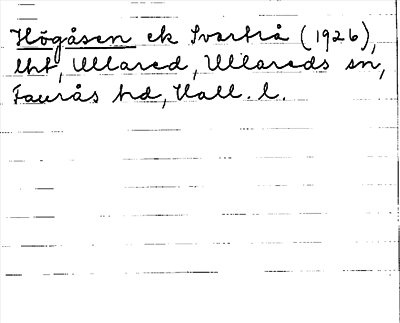 Högåsen ek Svartrå (1926),
lht, Ullared, Ullareds sn,
Faurås hd, Hall. l.